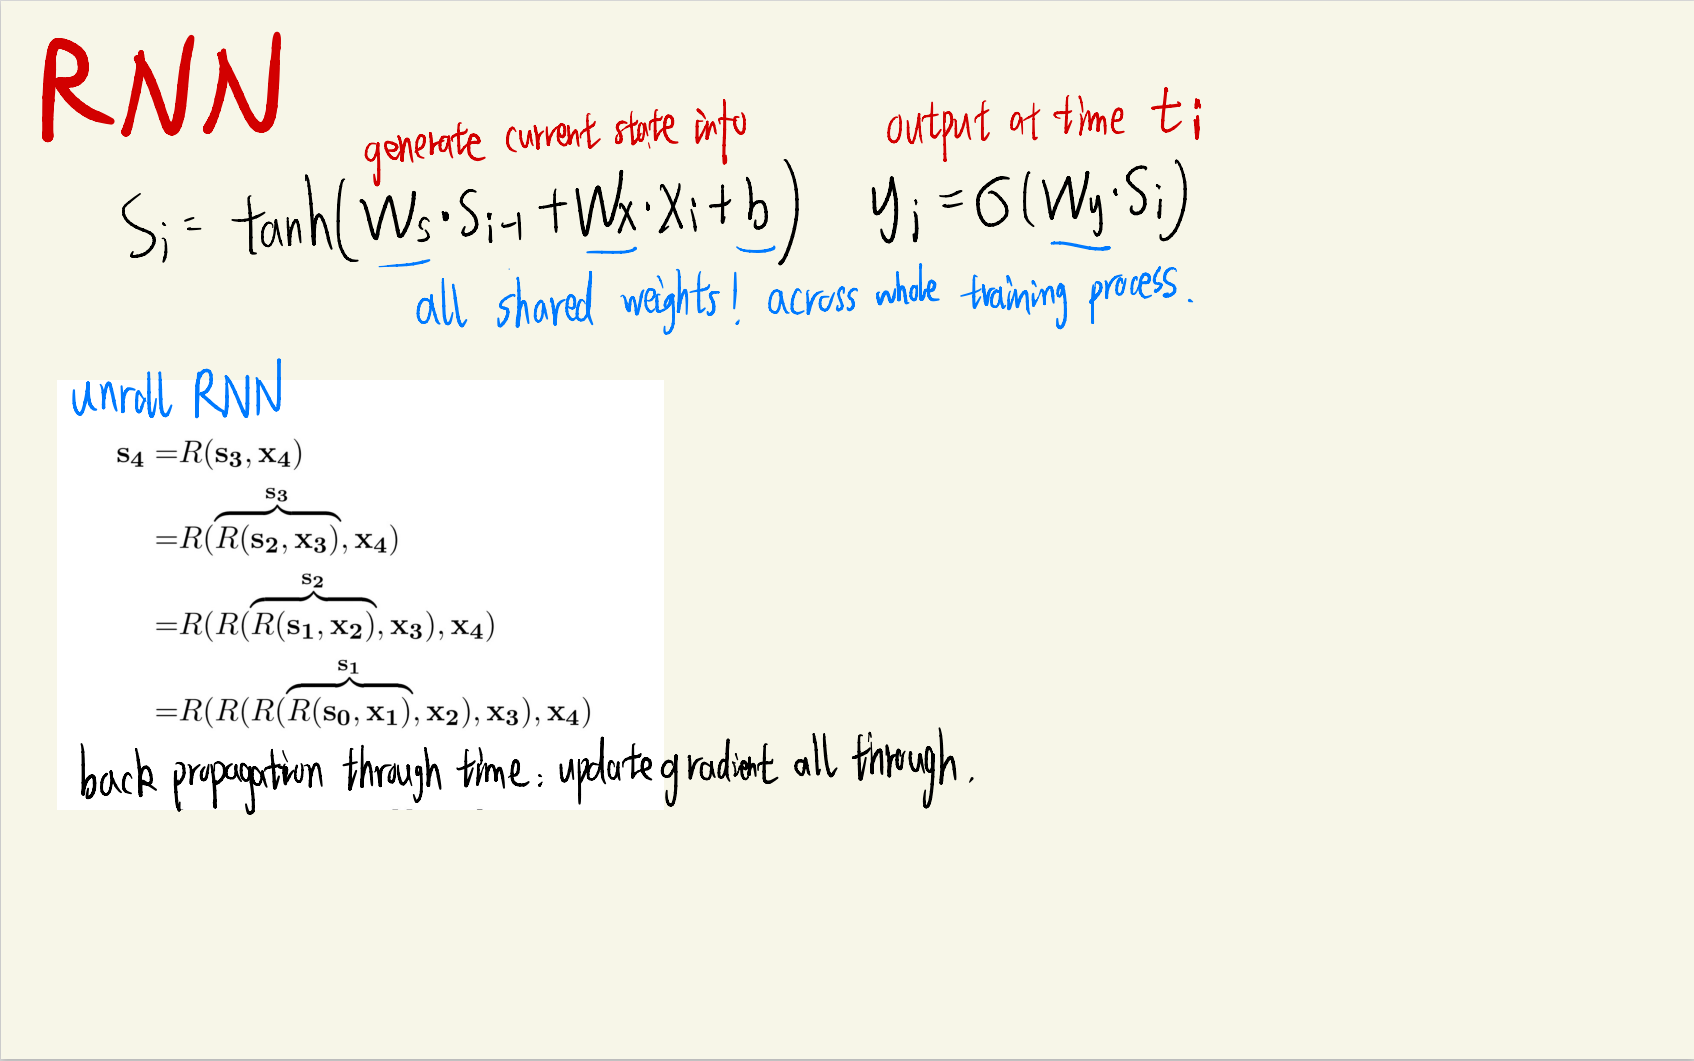 RNN
generate current state info
output at time ti
Si = tanh(Ws·Si-1 + Wx·Xi + b)
yi = σ(Wy·Si)
all shared weights! across whole training process.
unroll RNN
s4 =R(s3, x4)
s3
=R(R(s2, x3), x4)
s2
=R(R(R(s1, x2), x3), x4)
s1
=R(R(R(R(s0, x1), x2), x3), x4)
back propagation through time: update gradient all through.